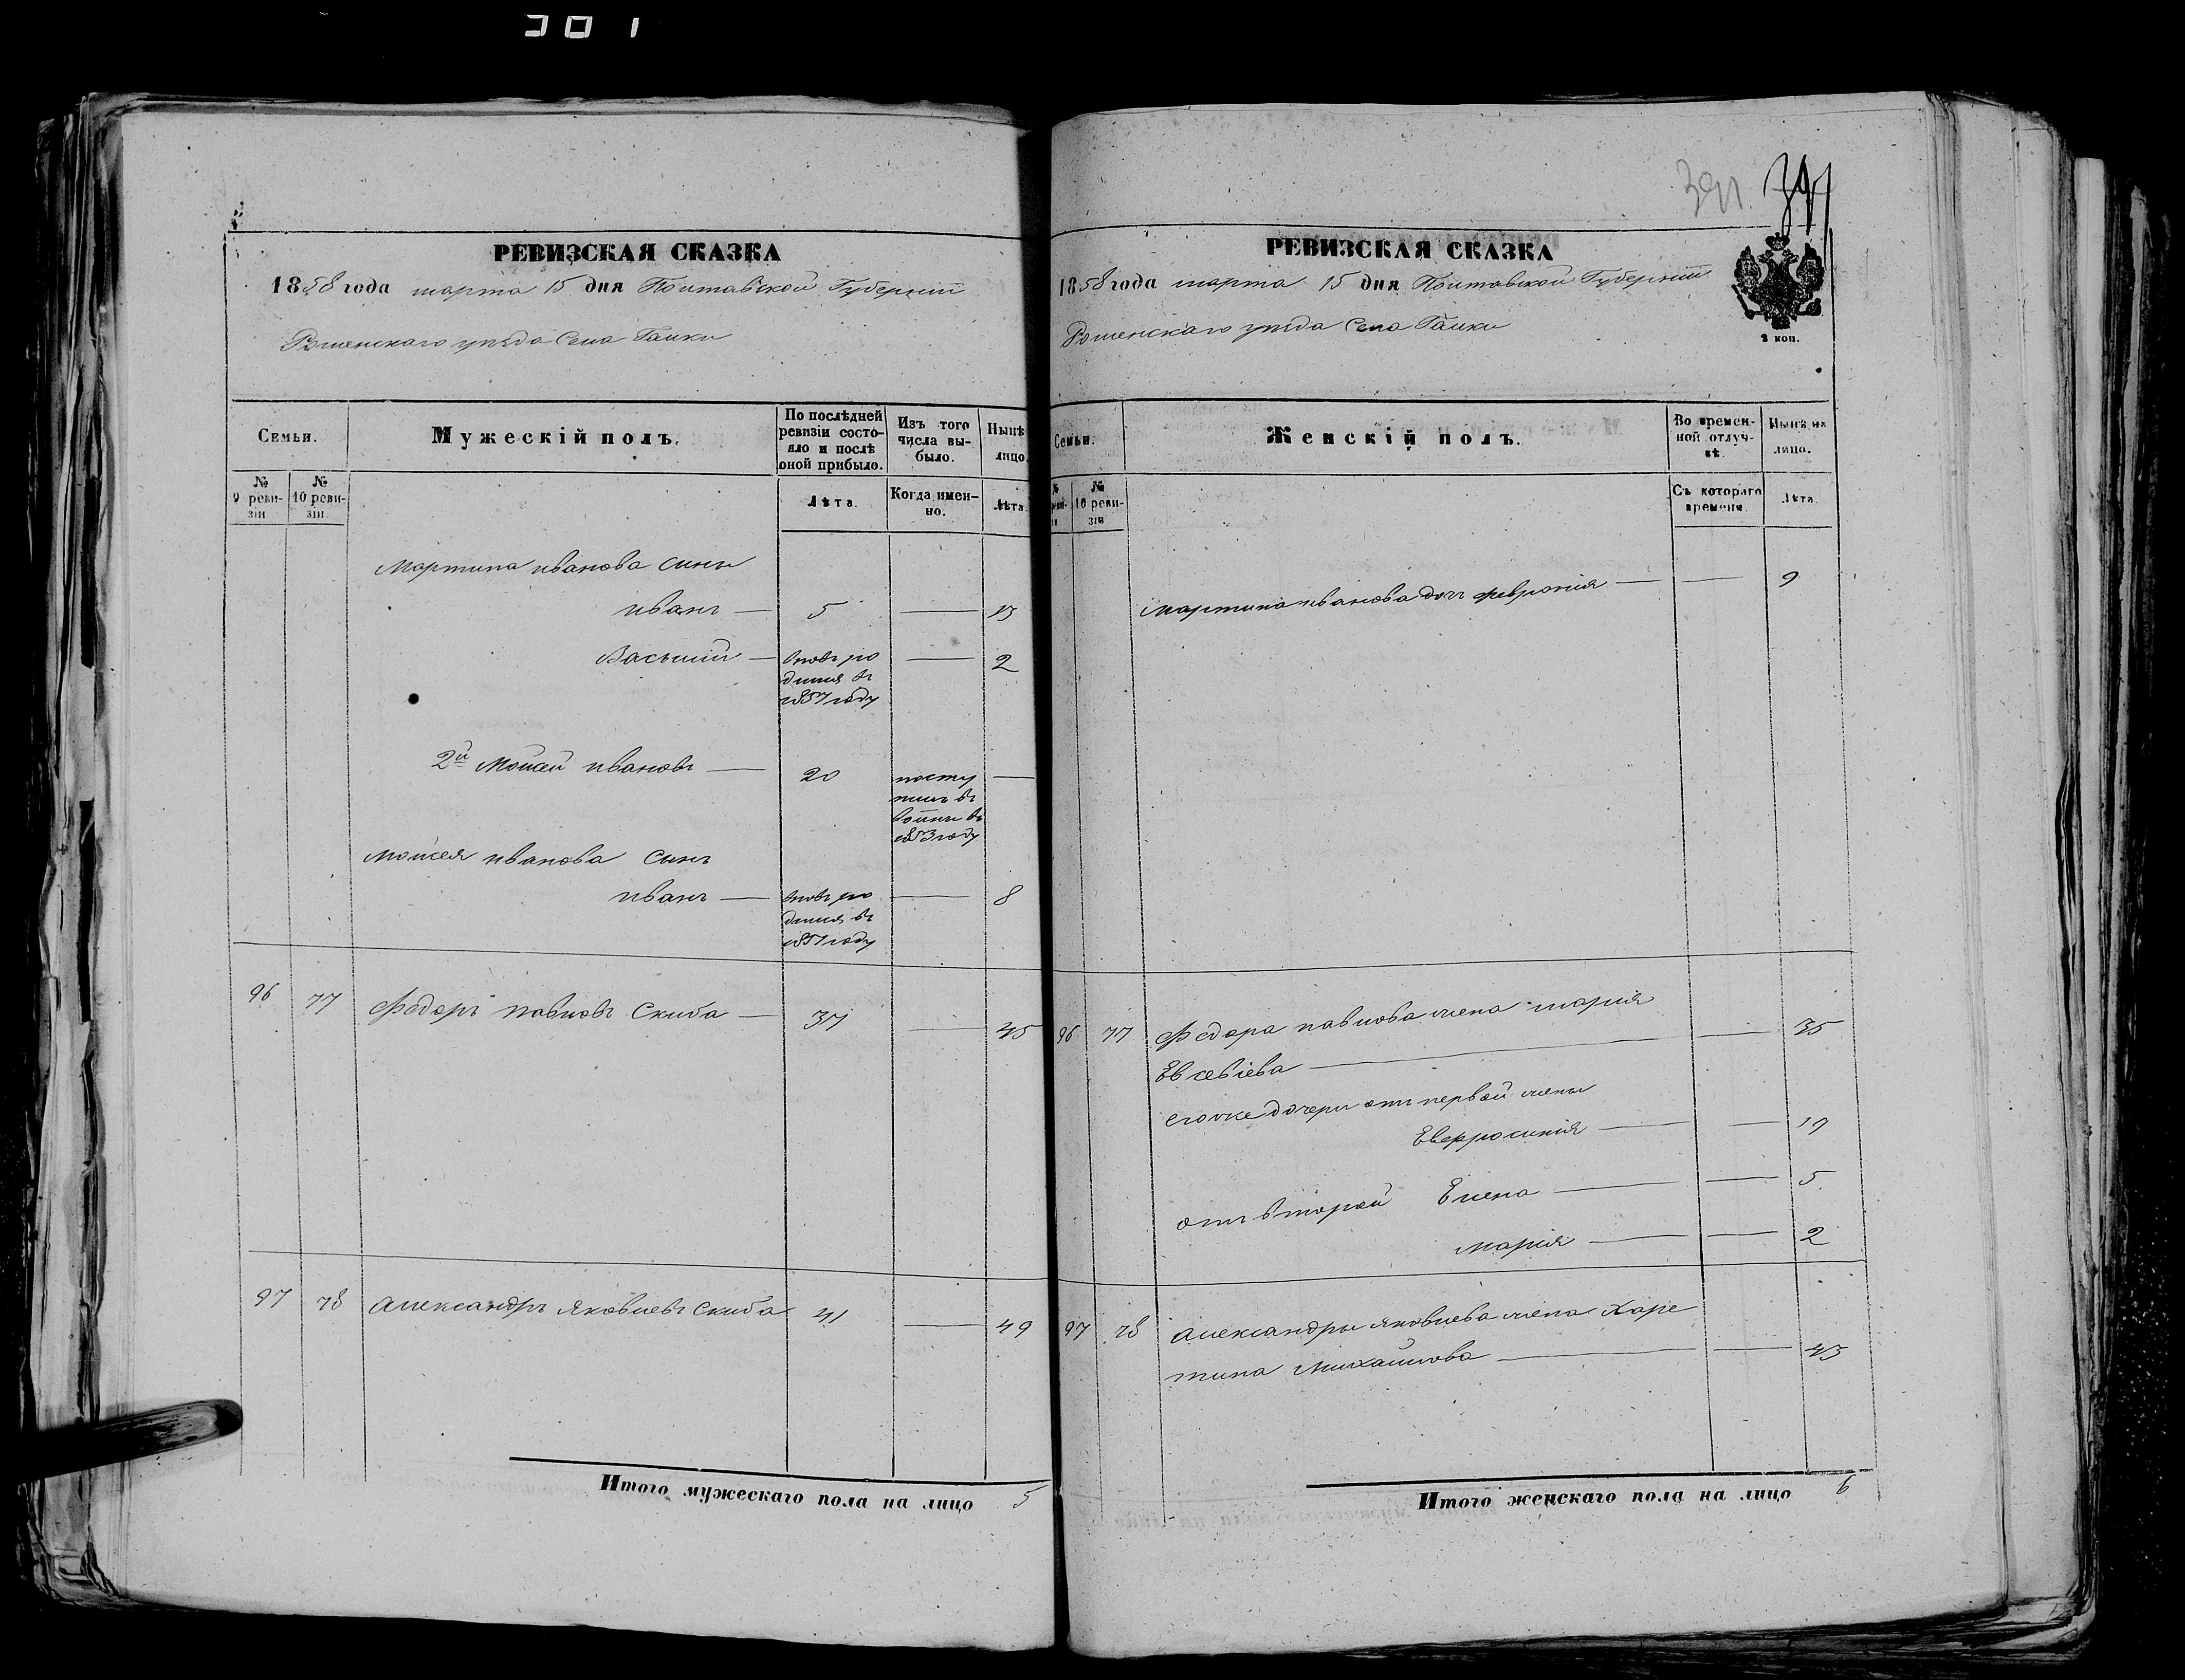 301
РЕВИЗСКАЯ СКАЗКА
1858 года марта 15 дня Полтавской Губерніи
Роменскаго уѣзда Села Галки
Семьи.
Мужескій полъ.
По послѣдней ревизіи состояло и послѣ оной прибыло.
Изъ того числа выбыло.
Нынѣ лицо.
№ 9 ревизіи
№ 10 ревизіи
Лѣта.
Когда именно.
Лѣта.
Мартина иванова сины
иванъ — 5 — 13
Василий — вновь родился въ 1857 году — 2
2й Моисей ивановъ — 20 поступилъ въ 1853 году —
моисея иванова сынъ
иванъ — вновь родился въ 1851 году — 8
96 77 Федоръ павловъ Скиба — 37 — 45
97 78 Александръ Яковлевъ Скиба 41 — 49
Итого мужескаго пола на лицо 5
391. 391
РЕВИЗСКАЯ СКАЗКА
1858 года марта 15 дня Полтавской Губерніи
Роменскаго уѣзда Села Галки
2 коп.
Семьи.
Женскій полъ.
Во временной отлучкѣ.
Нынѣ на лицо.
№ 10 ревизіи
Съ котораго времени.
Лѣта.
Мартина иванова доч феврония — — 9
96 77 Федора павлова жена мария
Евсевіева — — 35
его же дочери отъ первой жены
Евфросинія — — 19
отъ второй Елена — — 5
мария — — 2
97 78 Александры яковлева жена Харе
тина Михайлова — — 43
Итого женскаго пола на лицо 6